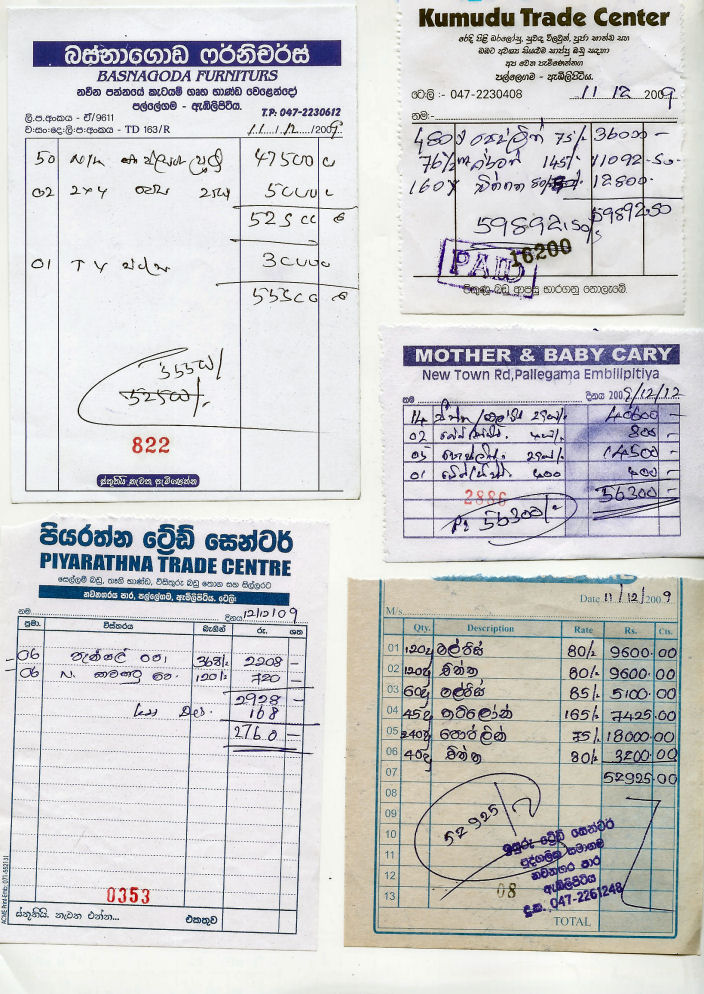 බස්නාගොඩ ෆර්නිචර්ස්
BASNAGODA FURNITURS
නවීන පන්නයේ කැටයම් ගෘහ භාණ්ඩ වෙළෙන්දෝ
පල්ලෙගම - ඇඹිලිපිටිය.
T.P: 047-2230612
ලි.ප.අංකය - ඒ/9611
ව.සං:දෙ:ලි:ප:අංකය - TD 163/R 11/12/2009
50 47500
02 2x4 5000
52500
01 TV 3000
55500
55500/
52500/.
822
ස්තූතියි නැවත පැමිණෙන්න
Kumudu Trade Center
රෙදි පිළි බරලෝසු, සුවඳ විලවුන්, පූජා භාණ්ඩ සහ
ඔබට අවශ්‍ය සියළුම සාප්පු බඩු සඳහා
අප වෙත පැමිණෙන්න
පල්ලෙගම - ඇඹිලිපිටිය.
ටෙලි :- 047-2230408 11/12 2009
නම:-
480y 75/ 36000 -
76 1/2 145/- 11092 - 50
160y චීත්ත 80/- 12800 -
59892.50 59892.50
PAID 16200
විකුණූ බඩු ආපසු භාරගනු නොලැබේ.
MOTHER & BABY CARY
New Town Rd,Pallegama Embilipitiya
නම දිනය 2009/12/12
14 2900/- 40600 -
02 400/- 800 -
05 2900/- 14500 -
01 400 400 -
2886 56300 -
56300/-
පියරත්න ට්‍රේඩ් සෙන්ටර්
PIYARATHNA TRADE CENTRE
සෙල්ලම් බඩු, තෑගි භාණ්ඩ, විසිතුරු බඩු තොග සහ සිල්ලරට
නවනගරය පාර, පල්ලේගම, ඇඹිලිපිටිය. ටෙලි:
නම දිනය 12/12/09
ප්‍රමා. විස්තරය බැගින් රු. ශත
06 පැන්සල් 368/- 2208 -
06 N. 120/- 720 -
2928 -
168
2760 -
0353
ස්තූතියි. නැවත එන්න... එකතුව
Date 11/12/2009
M/s
Qty. Description Rate Rs. Cts.
01 120y පල්පිස් 80/- 9600.00
02 120y චීත්ත 80/- 9600.00
03 60y පල්පිස් 85/- 5100.00
04 45y කැට්ලෝන් 165/- 7425.00
05 240y පොප්ලින් 75/- 18000.00
06 40y චීත්ත 80/- 3200.00
07 52925.00
08
09
10
11
12
13
52925/-
ඉසුරු ට්‍රේඩ් සෙන්ටර්
පුද්ගලික සමාගම
නවනගර පාර
ඇඹිලිපිටිය
දු.ක. 047-2261248
08
TOTAL